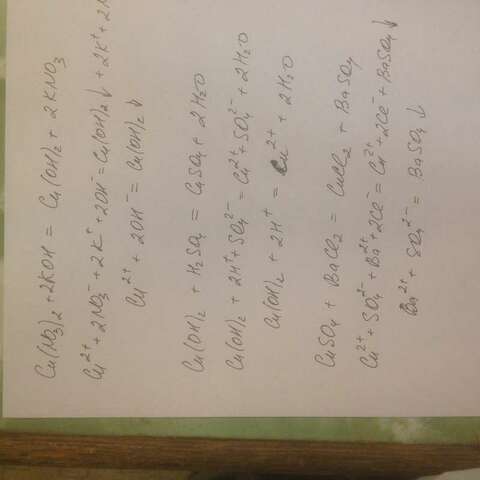 Cu(NO₃)₂ + 2KOH = Cu(OH)₂ + 2KNO₃
Cu²⁺ + 2NO₃⁻ + 2K⁺ + 2OH⁻ = Cu(OH)₂↓ + 2K⁺ + 2
Cu²⁺ + 2OH⁻ = Cu(OH)₂↓
Cu(OH)₂ + H₂SO₄ = CuSO₄ + 2H₂O
Cu(OH)₂ + 2H⁺ + SO₄²⁻ = Cu²⁺ + SO₄²⁻ + 2H₂O
Cu(OH)₂ + 2H⁺ = Cu²⁺ + 2H₂O
CuSO₄ + BaCl₂ = CuCl₂ + BaSO₄
Cu²⁺ + SO₄²⁻ + Ba²⁺ + 2Cl⁻ = Cu²⁺ + 2Cl⁻ + BaSO₄↓
Ba²⁺ + SO₄²⁻ = BaSO₄↓